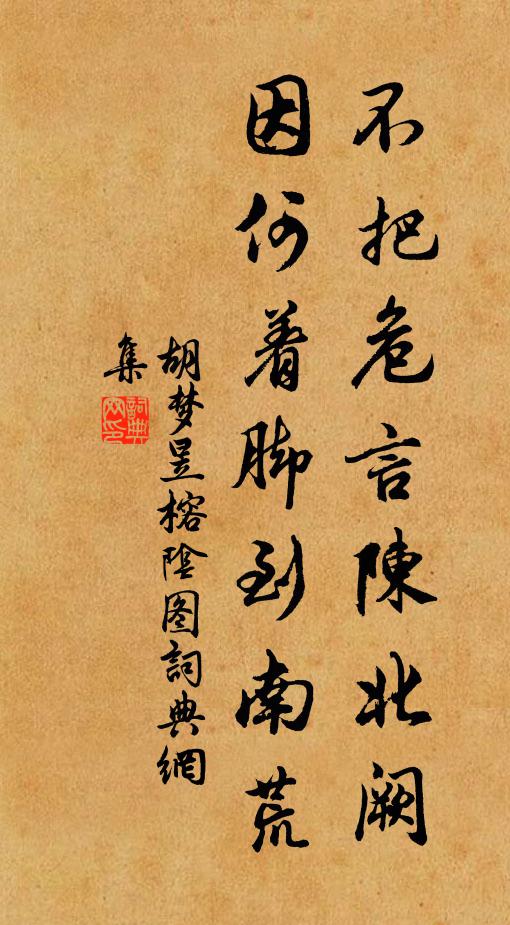 不把危言陳北闕
因何着脚到南荒
胡梦昱榕陰图詞典網
集
詞典網印